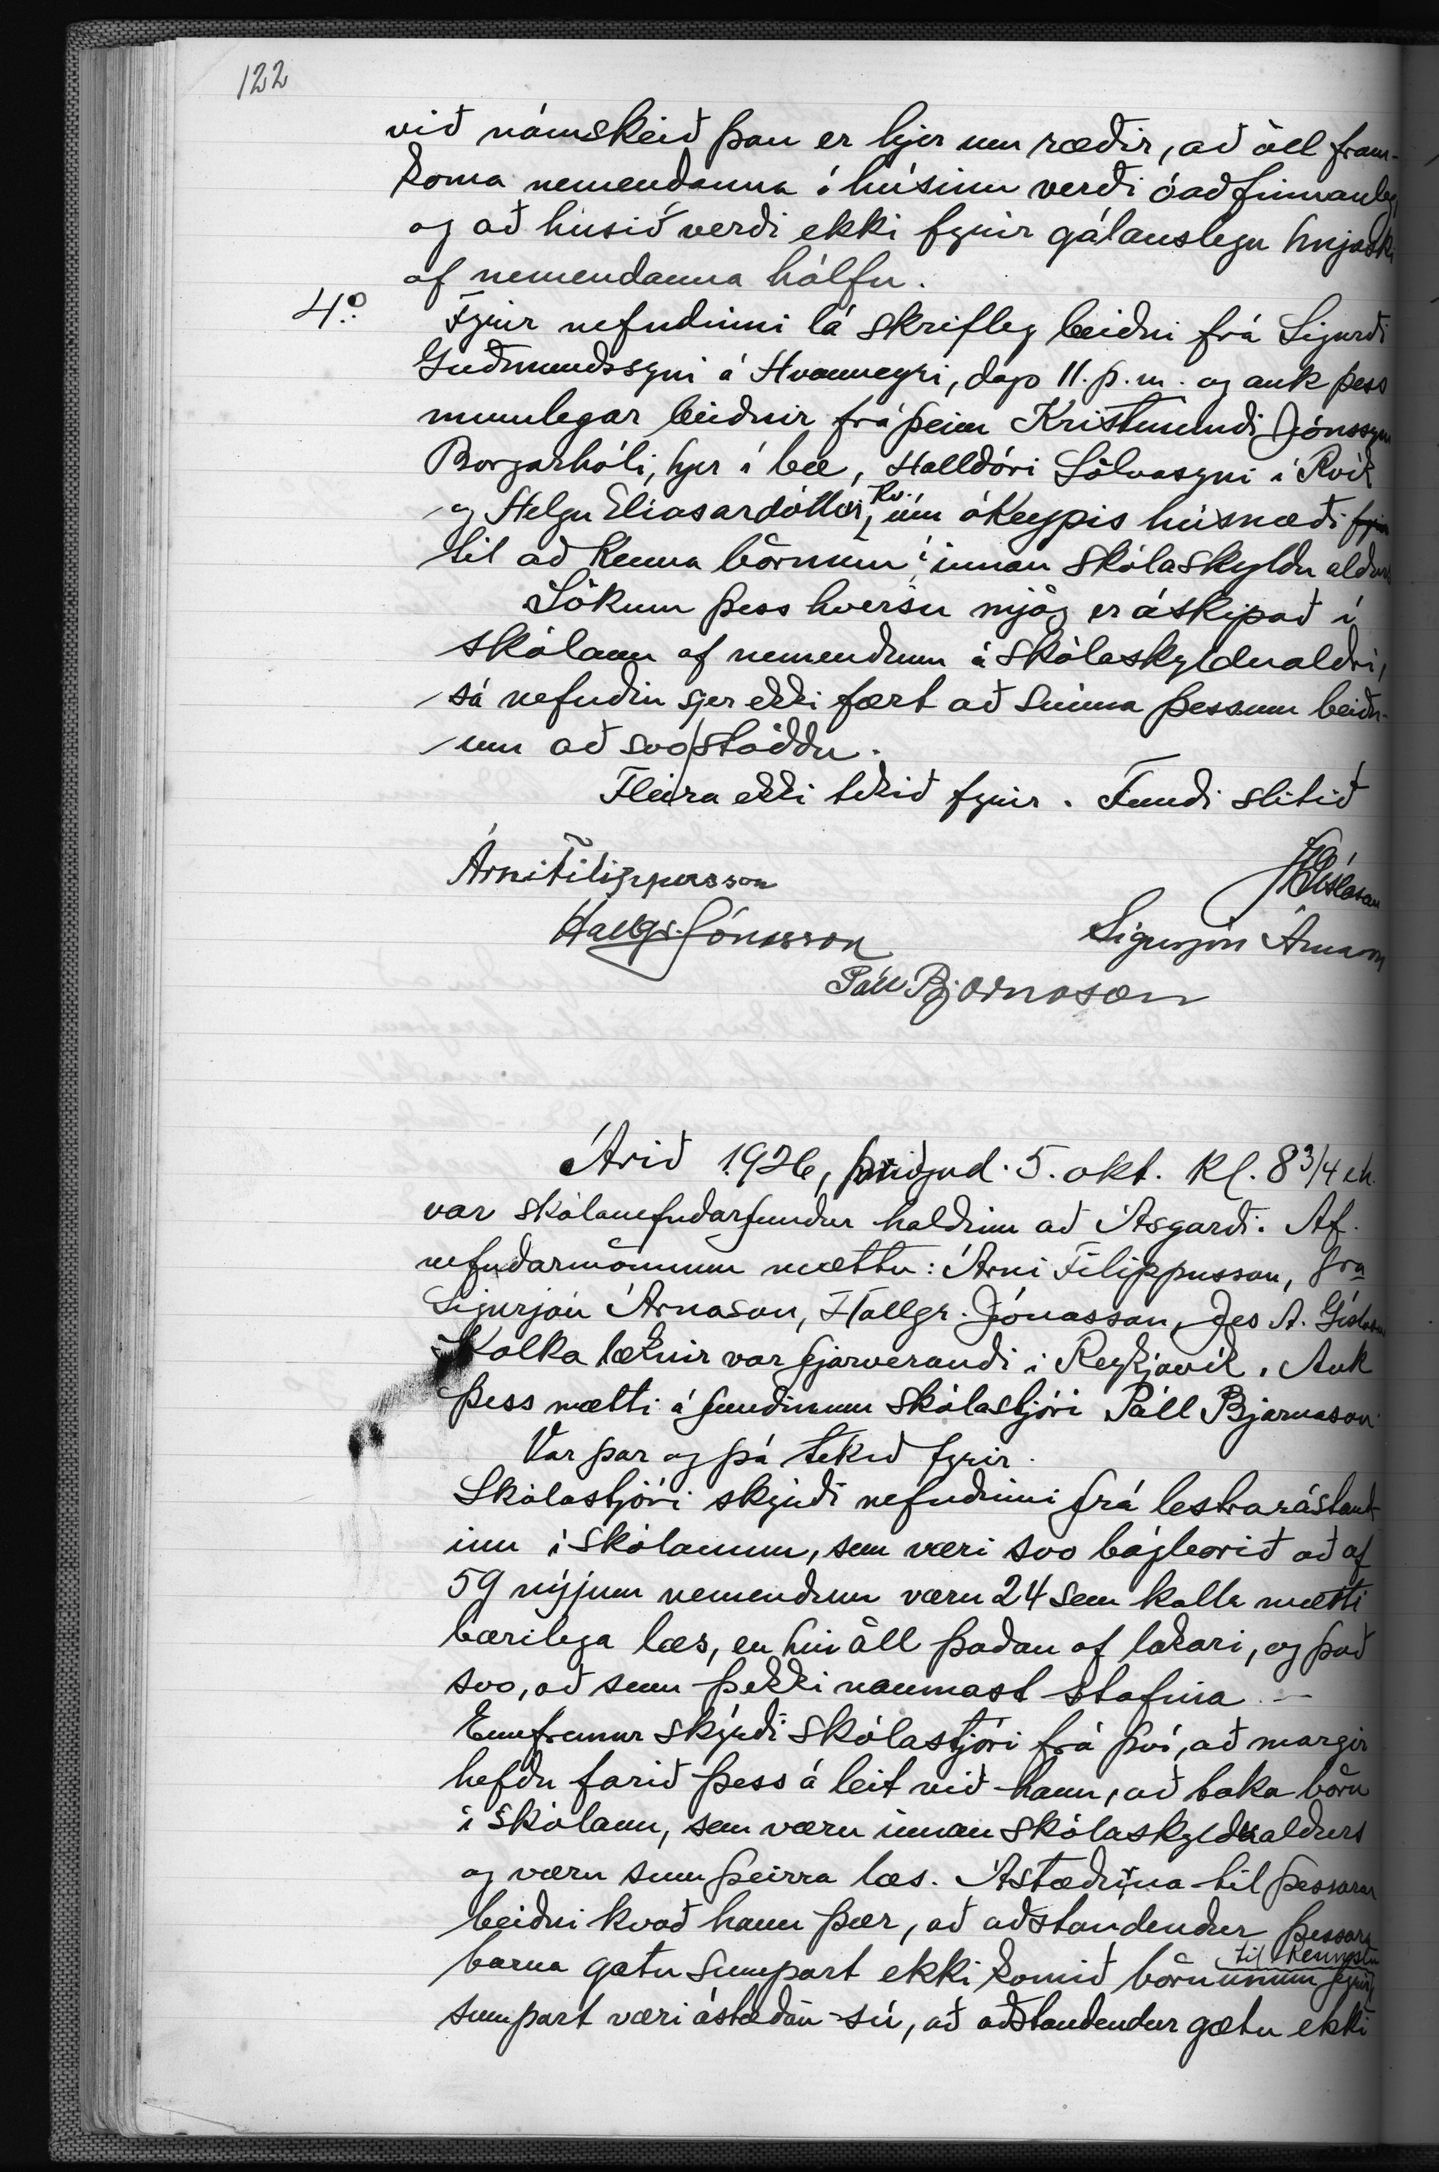 122
við námskeið þau er hjer um ræðir, að öll fram-
koma nemendanna í húsinu verði óaðfinnanleg,
og að húsið verði ekki fyrir gálauslegu hnjaski
af nemendanna hálfu.
4.º Fyrir nefndinni lá skrifleg beiðni frá Sigurði
Guðmundssyni á Hvanneyri, dags 11. þ.m. og auk þess
munnlegar beiðnir frá þeim Kristmundi Jónssyni
Borgarhóli, hjer í bæ, Halldóri Sölvasyni í Rvík
og Helgu Elíasardóttur, Rv. um ókeypis húsnæði fyrir
til að kenna börnum innan skólaskyldu aldurs
Sökum þess hversu mjög er áskipað í
skólann af nemendum á skólaskyldualdri,
sá nefndin sjer ekki fært að sinna þessum beiðn-
um að svo stöddu.
Fleira ekki tekið fyrir. Fundi slitið
Árni Filippusson
JAGíslason
Hallgr. Jónasson
Sigurjón Árnason
Páll Bjarnason
Árið 1926, þriðjud. 5. okt. kl. 8 3/4 eh.
var skólanefndarfundur haldinn að Ásgarði. Af
nefndarmönnum mættu: Árni Filippusson, sra
Sigurjón Árnason, Hallgr. Jónasson, Jes A. Gíslason
Kolka læknir var fjarverandi í Reykjavík. Auk
þess mætti á fundinum skólastjóri Páll Bjarnason
Var þar og þá tekið fyrir.
Skólastjóri skýrði nefndinni frá lestrarástand-
inu í skólanum, sem væri svo bágborið að af
59 nýjum nemendum væru 24 sem kalla mætti
bærilega læs, en hin öll þaðan af lakari, og það
svo, að sum þekki naumast stafina. —
Ennfremur skýrði skólastjóri frá því, að margir
hefðu farið þess á leit við hann, að taka börn
í skólann, sem væru innan skólaskyldualdurs
og væru sum þeirra læs. Ástæðuna til þessarar
beiðni kvað hann þær, að aðstandendur þessara
barna gætu sumpart ekki komið börnunum fyrir til kennslu
sumpart væri ástæðan sú, að aðstandendur gætu ekki